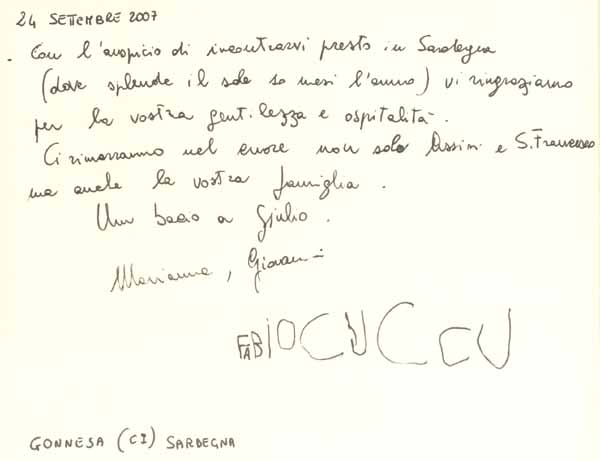 24 SETTEMBRE 2007
Con l'auspicio di incontrarvi presto in Sardegna
(dove splende il sole 10 mesi l'anno) vi ringraziamo
per la vostra gentilezza e ospitalità.
Ci rimarranno nel cuore non solo Assisi e S. Francesco
ma anche la vostra famiglia.
Un bacio a Giulio.
Marianna, Giovanni
FABIO CUCCU
GONNESA (CI) SARDEGNA